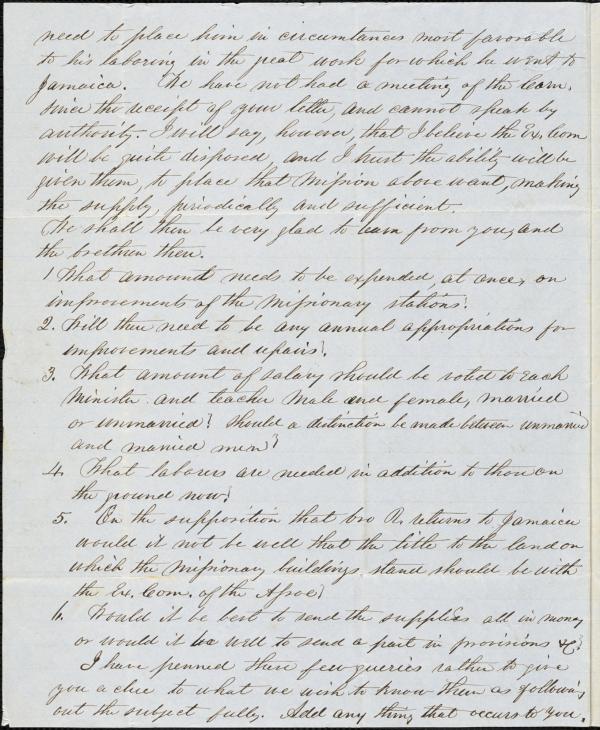 need to place him in circumstances most favorable
to his laboring in the great work for which he went to
Jamaica. We have not had a meeting of the Com.
since the receipt of your letter, and cannot speak by
authority. I will say, however, that I believe the Ex. Com
will be quite disposed, and I trust the ability will be
given them, to place that Mission above want, making
the supply, periodically and sufficient.
We shall then be very glad to learn from you, and
the brethren there.
1 What amount needs to be expended, at once, on
improvements of the Missionary stations?
2. Will there need to be any annual appropriations for
improvements and repairs?
3. What amount of salary should be voted to each
Minister and teacher male and female, married
or unmarried? Should a distinction be made between unmarried
and married men?
4. What laborers are needed in addition to those on
the ground now?
5. On the supposition that bro R. returns to Jamaica
would it not be well that the title to the land on
which the Missionary buildings stand should be with
the Ex. Com. of the Assoc?
6. Would it be best to send the supplies all in money
or would it be well to send a part in provisions &c?
I have penned these few queries rather to give
you a clue to what we wish to know than as following
out the subject fully. Add any thing that occurs to you.